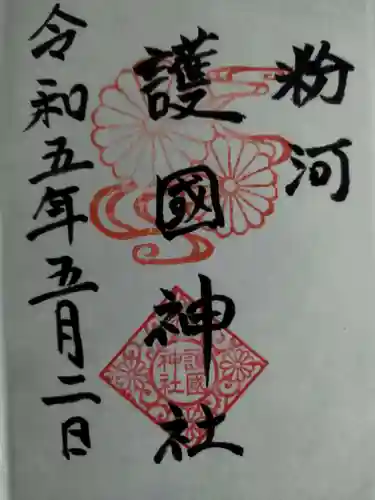 粉河
護國神社
令和五年五月二日
護國
神社